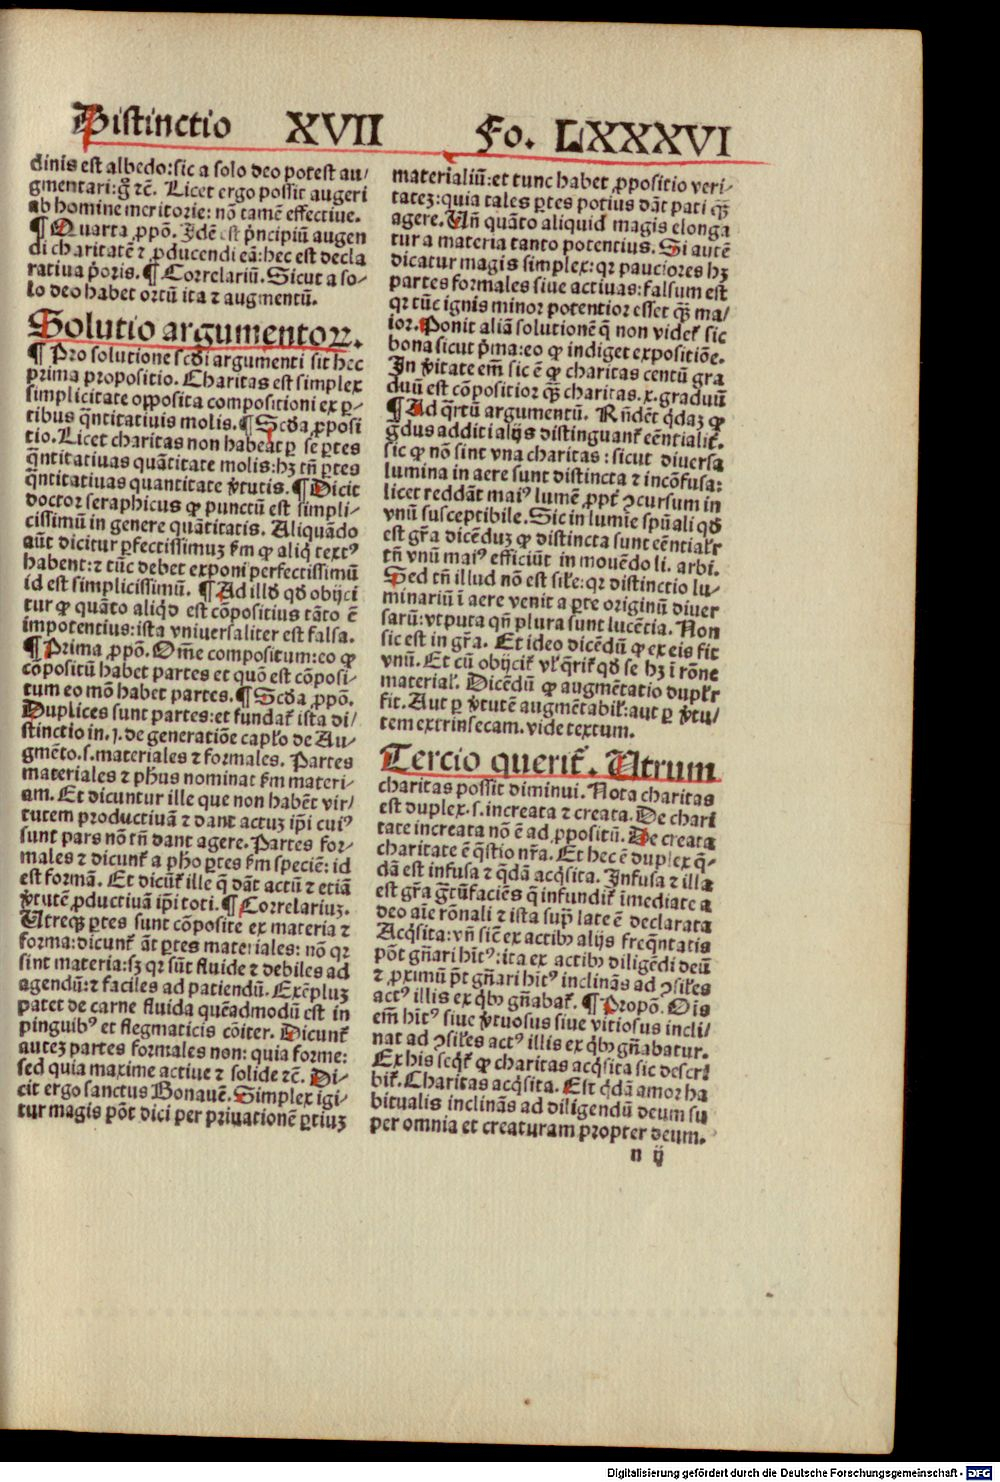 Distinctio XVII Fo. LXXXVI
dinis est albedo: sic a solo deo potest au/
gmentari: g̊ rc̄. Licet ergo possit augeri
ab homine meritorie: nō tamē effectiue.
¶ Quarta ꝓpō. Idē est pͥncipiū augen
di charitatē ⁊ ꝓducendi eā: hec est decla
ratiua pͥoris. ¶ Correlariū. Sicut a so-
lo deo habet ortū ita ⁊ augmentū.
Solutio argumentoꝝ.
¶ Pro solutione scd̄i argumenti sit hec
prima propositio. Charitas est simplex
simplicitate opposita compositioni ex ꝑ-
tibus q̄ntitatiuis molis. ¶ Scd̄a ꝓposi
tio. Licet charitas non habeat ꝑ se ꝑtes
q̄ntitatiuas quātitate molis: hꝫ tn̄ ꝑtes
q̄ntitatiuas quantitate v̓tutis. ¶ Dicit
doctor seraphicus ꝙ punctū est simpli-
cissimū in genere quātitatis. Aliquādo
aūt dicitur ꝑfectissimuꝫ ẜm ꝙ aliq̄ textꝰ
habent: ⁊ tūc debet exponi perfectissimū
id est simplicissimū. ¶ Ad illd̄ qd̄ obijci
tur ꝙ quāto aliqd̄ est cōpositius tāto ē
impotentius: ista vniuersaliter est falsa.
¶ Prima ꝓpō. Om̄e compositum: eo ꝙ
cōpositū habet partes et quō est cōposi-
tum eo mō habet partes. ¶ Scd̄a ꝓpō.
Duplices sunt partes: et fundať ista di/
stinctio in .1. de generatiōe capło de Au-
gmēto. s. materiales ⁊ formales. Partes
materiales ⁊ ph̄us nominat ẜm materi-
am. Et dicuntur ille que non habēt vir/
tutem productiuā ⁊ dant actuꝫ ip̄i cuiꝰ
sunt pars nō tn̄ dant agere. Partes for-
males ⁊ dicunť a ph̄o ꝑtes ẜm speciē: id
est formā. Et dicūť ille q̄ dāt actū ⁊ etiā
v̓tutē ꝓductiuā ip̄i toti. ¶ Correlariuꝫ.
Utreqꝫ ꝑtes sunt cōposite ex materia ⁊
forma: dicunť āt ꝑtes materiales: nō qꝛ
sint materia: sꝫ qꝛ sūt fluide ⁊ debiles ad
agendū: ⁊ faciles ad patiendū. Exēpluꝫ
patet de carne fluida quēadmodū est in
pinguibꝰ et flegmaticis cōiter. Dicunť
auteꝫ partes formales non: quia forme:
sed quia maxime actiue ⁊ solide ⁊c̄. Di-
cit ergo sanctus Bonauē. Simplex igi-
tur magis pōt dici per priuationē ꝑtiuꝫ
materialiū: et tunc habet ꝓpositio veri-
tateꝫ: quia tales ꝑtes potius dāt pati qꝫ̄
agere. Un̄ quāto aliquid magis elonga
tur a materia tanto potentius. Si autē
dicatur magis simplex: qꝛ pauciores hꝫ
partes formales siue actiuas: falsum est
qꝛ tūc ignis minor potentior esset qꝫ̄ ma/
ior. Ponit aliā solutionē q̄ non videť sic
bona sicut pͥma: eo ꝙ indiget expositiōe.
In v̓itate em̄ sic ē ꝙ charitas centū gra
duū est cōpositior qꝫ̄ charitas .x. graduū
¶ Ad q̄rtū argumentū. Rn̄dēt q̇daꝫ ꝙ
g̓dus additi alijs distinguanť eēntialiť.
sic ꝙ nō sint vna charitas: sicut diuersa
lumina in aere sunt distincta ⁊ incōfusa:
licet reddāt maiꝰ lumē ꝓpť ↄcursum in
vnū susceptibile. Sic in lumīe spūali qd̄
est gr̄a dicēduꝫ ꝙ distincta sunt eēntialr̄
tn̄ vnū maiꝰ efficiūt in mouēdo li. arbi.
Sed tn̄ illud nō est sił̄e: qꝛ distinctio lu-
minariū ī aere venit a ꝑte originū diuer
sarū: vtputa qn̄ plura sunt lucētia. Non
sic est in gr̄a. Et ideo dicēdū ꝙ ex eis fit
vnū. Et cū obijciť vł q̄riť qd̄ se hꝫ ī rōne
materiał. Dicēdū ꝙ augmētatio duplr̄
fit. Aut ꝑ v̓tutē augmētabił: aut ꝑ v̓tu/
tem extrinsecam. vide textum.
Tercio queriť. Utrum
charitas possit diminui. Nota charitas
est duplex .s. increata ⁊ creata. De chari
tate increata nō ē ad ꝓpositū. De creata
charitate ē q̄stio nr̄a. Et hec ē duplex q̄-
dā est infusa ⁊ q̄dā acq̇sita. Infusa ⁊ illa
est gr̄a g̓tūfaciēs q̄ infundiť īmediate a
deo aīe rōnali ⁊ ista sup̄ late ē declarata
Acq̇sita: vn̄ sic̄ ex actibꝰ alijs freq̄ntatis
pōt gn̄ari hītꝰ: ita ex actibꝰ diligēdi deū
⁊ ꝓximū p̄t gn̄ari hītꝰ inclinās ad ↄsiłes
actꝰ illis ex q̇bꝰ gn̄abať. ¶ Propō. Ois
em̄ hītꝰ siue v̓tuosus siue vitiosus incli/
nat ad ↄsiłes actꝰ illis ex q̇bꝰ gn̄abatur.
Ex his seq̇ť ꝙ charitas acq̇sita sic descri
biť. Charitas acq̇sita. Est q̄dā amor ha
bitualis inclinās ad diligendū deum su
per omnia et creaturam propter deum.
n ij
Digitalisierung gefördert durch die Deutsche Forschungsgemeinschaft - DFG